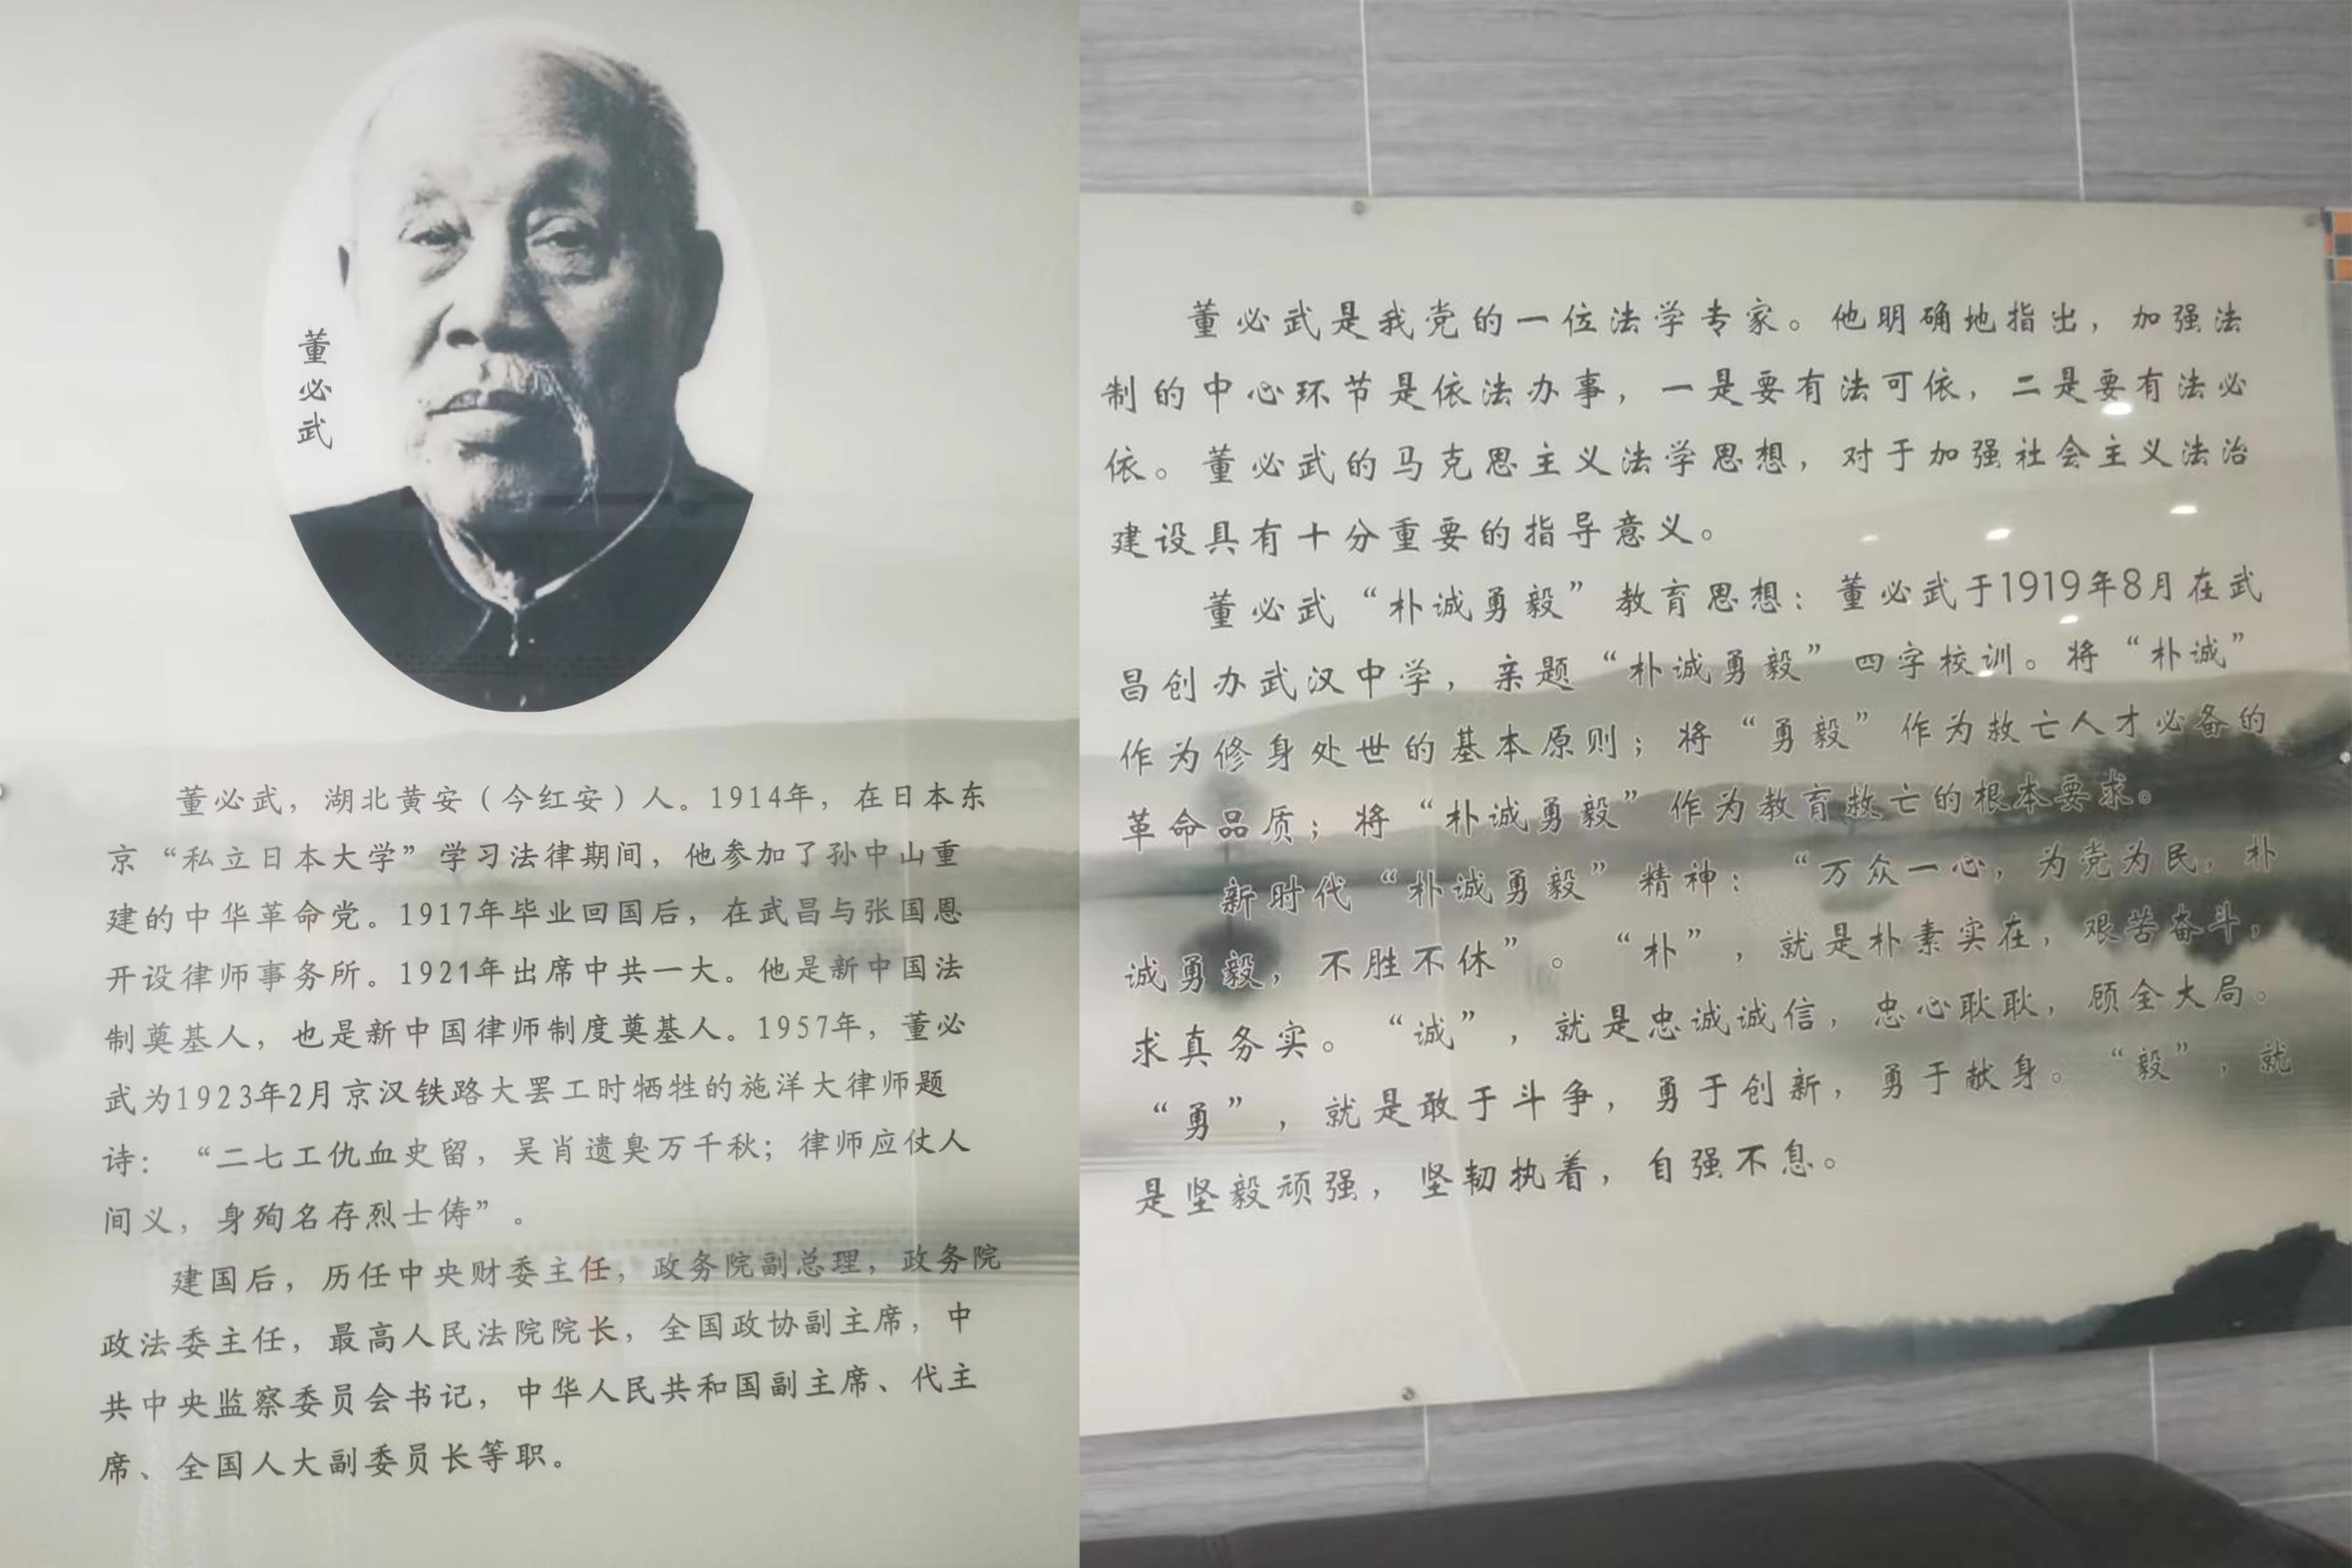 董必武
董必武，湖北黄安（今红安）人。1914年，在日本东
京“私立日本大学”学习法律期间，他参加了孙中山重
建的中华革命党。1917年毕业回国后，在武昌与张国恩
开设律师事务所。1921年出席中共一大。他是新中国法
制奠基人，也是新中国律师制度奠基人。1957年，董必
武为1923年2月京汉铁路大罢工时牺牲的施洋大律师题
诗：“二七工仇血史留，吴肖遗臭万千秋；律师应仗人
间义，身殉名存烈士俦”。
建国后，历任中央财委主任，政务院副总理，政务院
政法委主任，最高人民法院院长，全国政协副主席，中
共中央监察委员会书记，中华人民共和国副主席、代主
席、全国人大副委员长等职。
董必武是我党的一位法学专家。他明确地指出，加强法
制的中心环节是依法办事，一是要有法可依，二是要有法必
依。董必武的马克思主义法学思想，对于加强社会主义法治
建设具有十分重要的指导意义。
董必武“朴诚勇毅”教育思想：董必武于1919年8月在武
昌创办武汉中学，亲题“朴诚勇毅”四字校训。将“朴诚”
作为修身处世的基本原则；将“勇毅”作为救亡人才必备的
革命品质；将“朴诚勇毅”作为教育救亡的根本要求。
新时代“朴诚勇毅”精神：“万众一心，为党为民，朴
诚勇毅，不胜不休”。“朴”，就是朴素实在，艰苦奋斗，
求真务实。“诚”，就是忠诚诚信，忠心耿耿，顾全大局。
“勇”，就是敢于斗争，勇于创新，勇于献身。“毅”，就
是坚毅顽强，坚韧执着，自强不息。